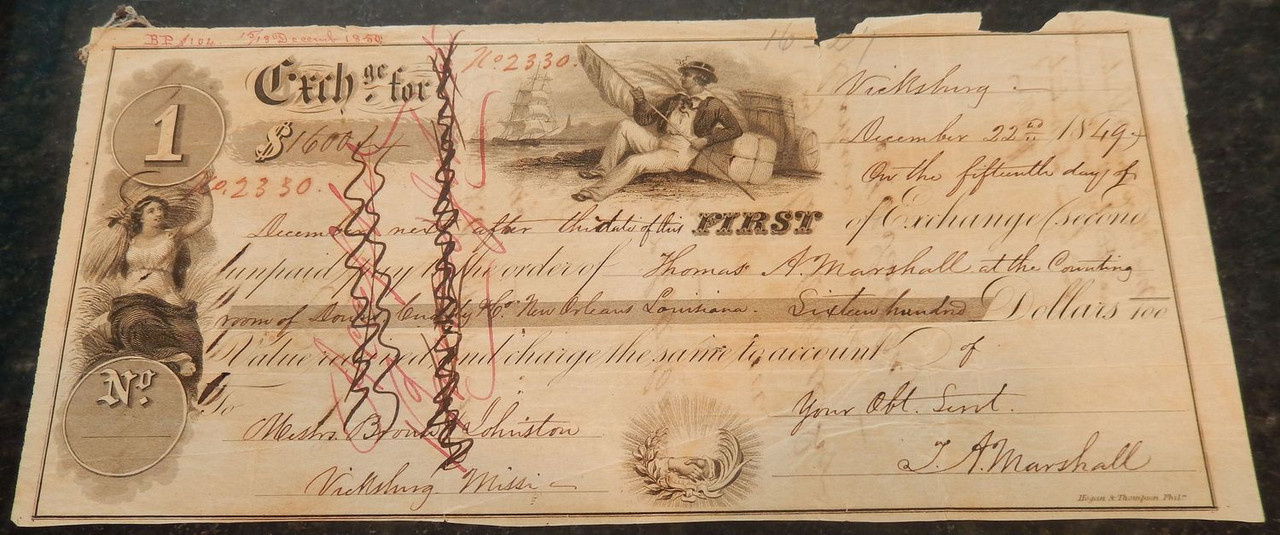 BP $102 15/18 Decemb 1850
Exchge. for
No. 2330.
16 - 24
Vicksburg
1
$1600
December 22nd 1849
No. 2330.
On the fifteenth day of
December next after this date of this FIRST of Exchange (second
unpaid) pay to the order of Thomas A. Marshall at the Counting
room of & Co. New Orleans Louisiana. Sixteen hundred Dollars 100
Value received and charge the same to account of
No.
To
Messrs. Brown & Johnston
Your Obt. Servt.
Vicksburg Missi
T. A. Marshall
Hogan & Thompson Phila.